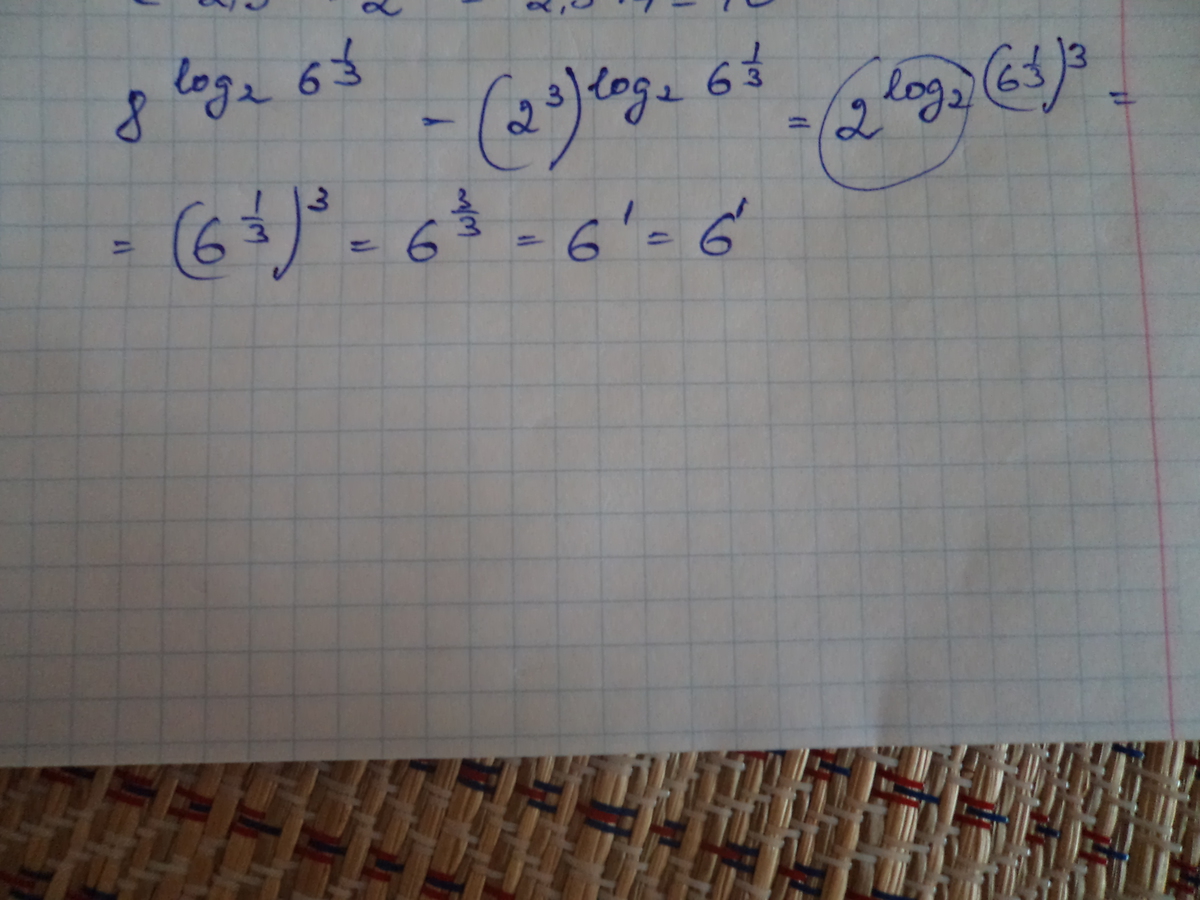 8^{log₂ 6^{1/3}} - (2³)^{log₂ 6^{1/3}} = 2^{log₂ (6^{1/3})³} =
= (6^{1/3})³ = 6^{3/3} = 6¹ = 6¹